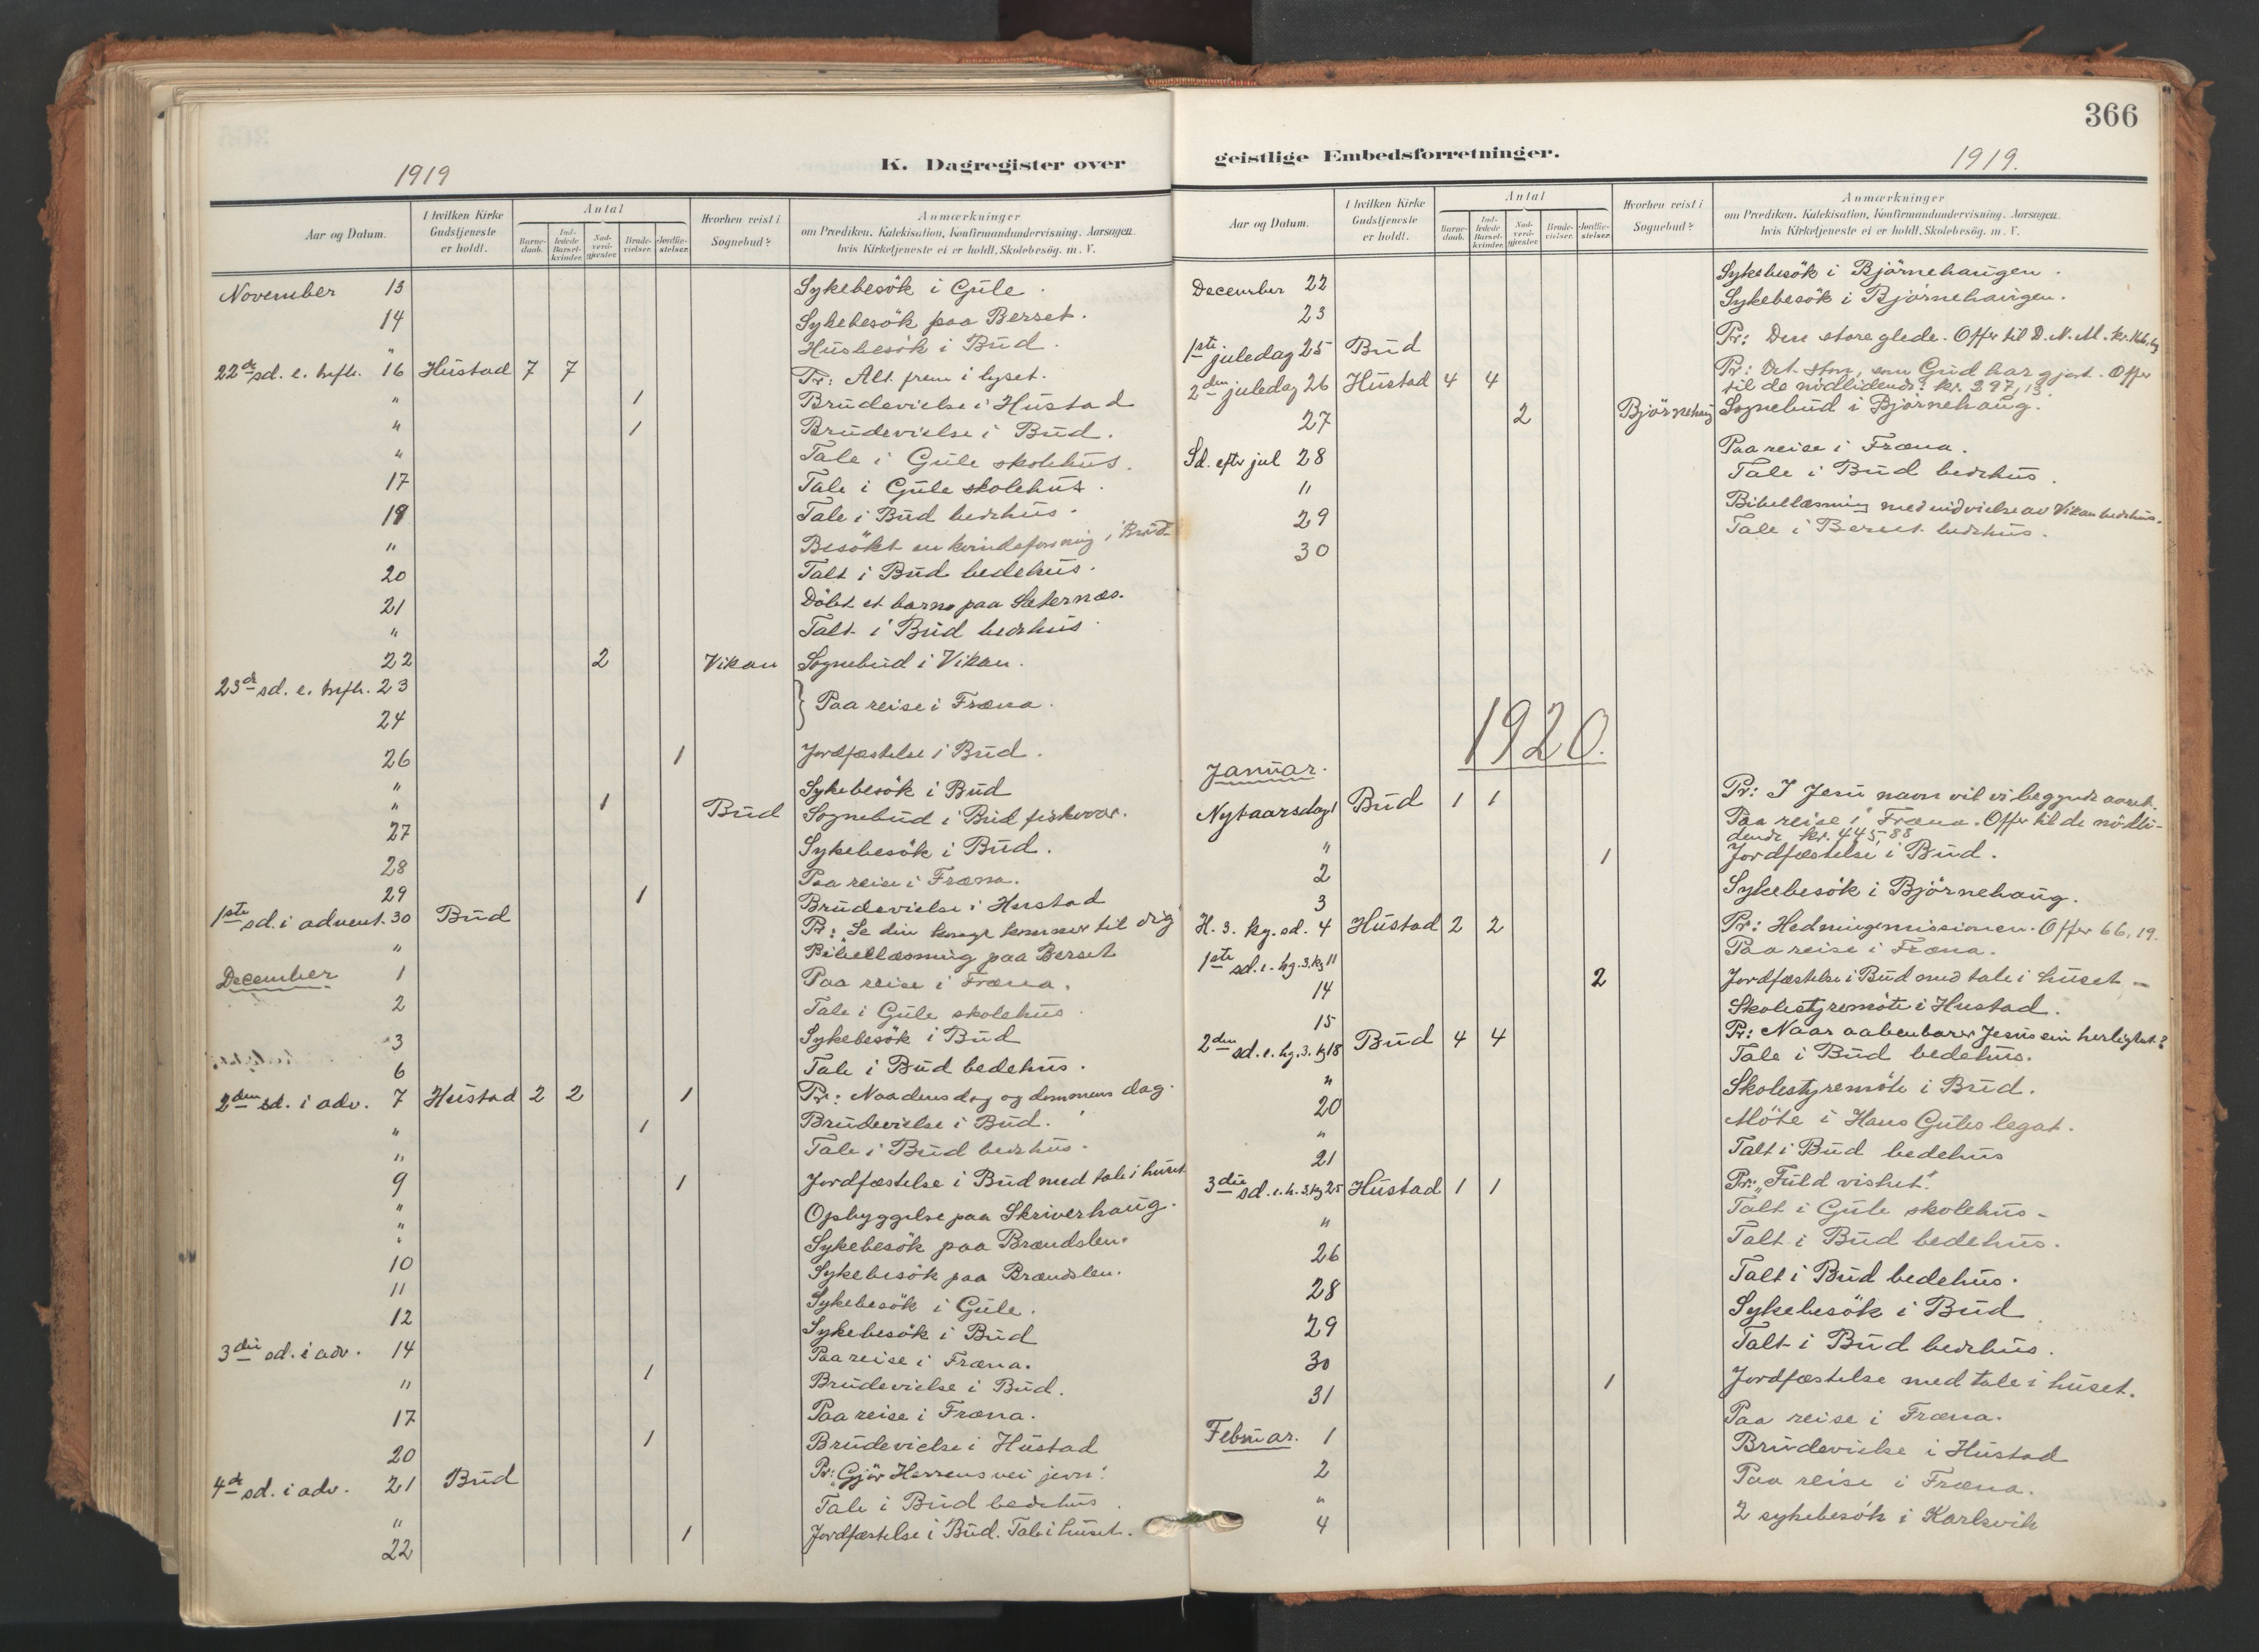 1919
K. Dagregister over
Aar og Datum.
I hvilken Kirke Gudstjeneste er holdt.
Antal
Barnedaab.
Indledede Barselkvinder.
Nadverdgjæster.
Brudevielser.
Jordfæstelser.
Hvorhen reist i Sognebud?
Anmærkninger
om Prædiken. Katekisation, Konfirmandundervisning. Aarsagen
hvis Kirketjeneste ei er holdt, Skolebesög. m. V.
November 13 Sykebesök i Gule.
14 Sykebesök paa Berset.
" Husbesök i Bud.
22de sd. e. trefh. 16 Hustad 7 7 Pr: Alt frem i lyset.
" 1 Brudevielse i Hustad
" 1 Brudevielse i Bud.
" Tale i Gule skolehus.
17 Tale i Gule skolehus.
18 Tale i Bud bedehus.
" Besökt en kvindeforening i Bud
20 Talt i Bud bedehus.
21 Döbt et barn paa Sæternæs.
" Talt i Bud bedehus.
22 2 Vikan Sognebud i Vikan.
23de sd. e. trefh. 23
24 } Paa reise i Fræna.
26 1 Jordfæstelse i Bud.
" Sykebesök i Bud
" 1 Bud Sognebud i Bud fiskevær.
27 Sykebesök i Bud.
28 Paa reise i Fræna.
29 1 Brudevielse i Hustad
1ste sd. i advent. 30 Bud Pr: "Se din konge kommer til dig"
" Bibellæsning paa Berset
December 1 Paa reise i Fræna.
2 Tale i Gule skolehus
3 Sykebesök i Bud
6 Tale i Bud bedehus.
2den sd. i adv. 7 Hustad 2 2 1 Pr: Naadens dag og dommens dag.
" 1 Brudevielse i Bud.
" Tale i Bud bedehus.
9 1 Jordfæstelse i Bud med tale i huset
" Opbyggelse paa Skriverhaug.
" Sykebesök paa Brændslen.
10 Sykebesök paa Brændslen.
11 Sykebesök i Gule.
12 Sykebesök i Bud
3die sd. i adv. 14 Paa reise i Fræna.
" 1 Brudevielse i Bud.
17 Paa reise i Fræna.
20 1 Brudevielse i Hustad
4de sd. i adv. 21 Bud Pr: "Gjör Herrens vei jevn".
" Tale i Bud bedehus.
22 1 Jordfæstelse i Bud. Tale i huset.
366
geistlige Embedsforretninger.
1919.
Aar og Datum.
I hvilken Kirke Gudstjeneste er holdt.
Antal
Barnedaab.
Indledede Barselkvinder.
Nadverdgjæster.
Brudevielser.
Jordfæstelser.
Hvorhen reist i Sognebud?
Anmærkninger
om Prædiken. Katekisation, Konfirmandundervisning. Aarsagen
hvis Kirketjeneste ei er holdt, Skolebesög. m. V.
December 22 Sykebesök i Björnehaugen.
23 Sykebesök i Björnehaugen.
1ste juledag 25 Bud Pr: Den store glede. Offer til D. N. M. kr. 166,
2den juledag 26 Hustad 4 4 Pr: Det store, som Gud har gjort. Offer
til de nödlidende kr. 297,13
27 2 Björnehaug Sognebud i Björnehaug.
Sd. efter jul 28 Paa reise i Fræna.
" Tale i Bud bedehus.
29 Bibellæsning med indvielse av Vikan bedehus.
30 Tale i Berset bedehus.
1920.
Januar.
Nytaarsdag 1 Bud 1 1 Pr: I Jesu navn vil vi begynde aaret.
" Paa reise i Fræna. Offer til de nödli-
dende kr. 445,88
2 1 Jordfæstelse i Bud.
3 Sykebesök i Björnehaug.
H. 3. kg. sd. 4 Hustad 2 2 Pr: Hedningemissionen. Offer 66,19.
1ste sd. e. hg. 3. kg 11 Paa reise i Fræna.
14 2 Jordfæstelse i Bud med tale i huset -
15 Skolestyremöte i Hustad.
2den sd. e. hg. 3. kg 18 Bud 4 4 Pr: Naar aabenbarer Jesus sin herlighet?
" Tale i Bud bedehus.
20 Skolestyremöte i Bud.
" Möte i Hans Gules legat.
21 Talt i Bud bedehus
3die sd. e. h. 3. kg 25 Hustad 1 1 Pr: "Fuld vishet".
" Talt i Gule skolehus -
26 Talt i Bud bedehus.
28 Talt i Bud bedehus.
29 Sykebesök i Bud
30 Talt i Bud bedehus.
31 1 Jordfæstelse med tale i huset.
Februar. 1 Paa reise i Fræna.
2 Brudevielse i Hustad
" Paa reise i Fræna.
4 2 sykebesök i Karlsvik